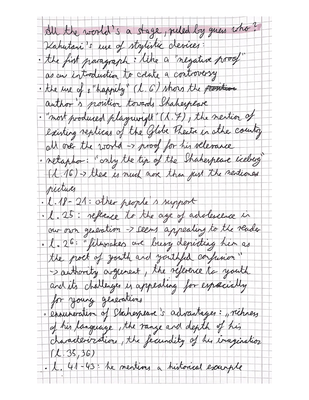 All the world's a stage, ruled by guess who?
Kakutani's use of stylistic devices:
• the first paragraph: like a "negative proof"
as an introduction to create a controversy
• the use of: "happily" (l. 6) shows the
author's position towards Shakespeare
• "most produced playwright" (l. 7), the mention of
existing replicas of the Globe Theatre in other country
all over the world → proof for his relevance
• metaphor: "only the tip of the Shakespeare iceberg"
(l. 16) → there is much more than just the mentioned
picture
• l. 18-21: other people's support
• l. 25: reference to the age of adolescence in
our own generation → seems appealing to the reader
• l. 26: "filmmakers are busy depicting him as
the poet of youth and youthful confusion"
→ authority argument, the reference to youth
and its challenges is appealing for especially
for young generations
• enumeration of Shakespeare's advantages: "richness
of his language, the range and depth of his
characterizations, the fecundity of his imagination
(l. 35,36)
• l. 41-43: he mentions a historical example